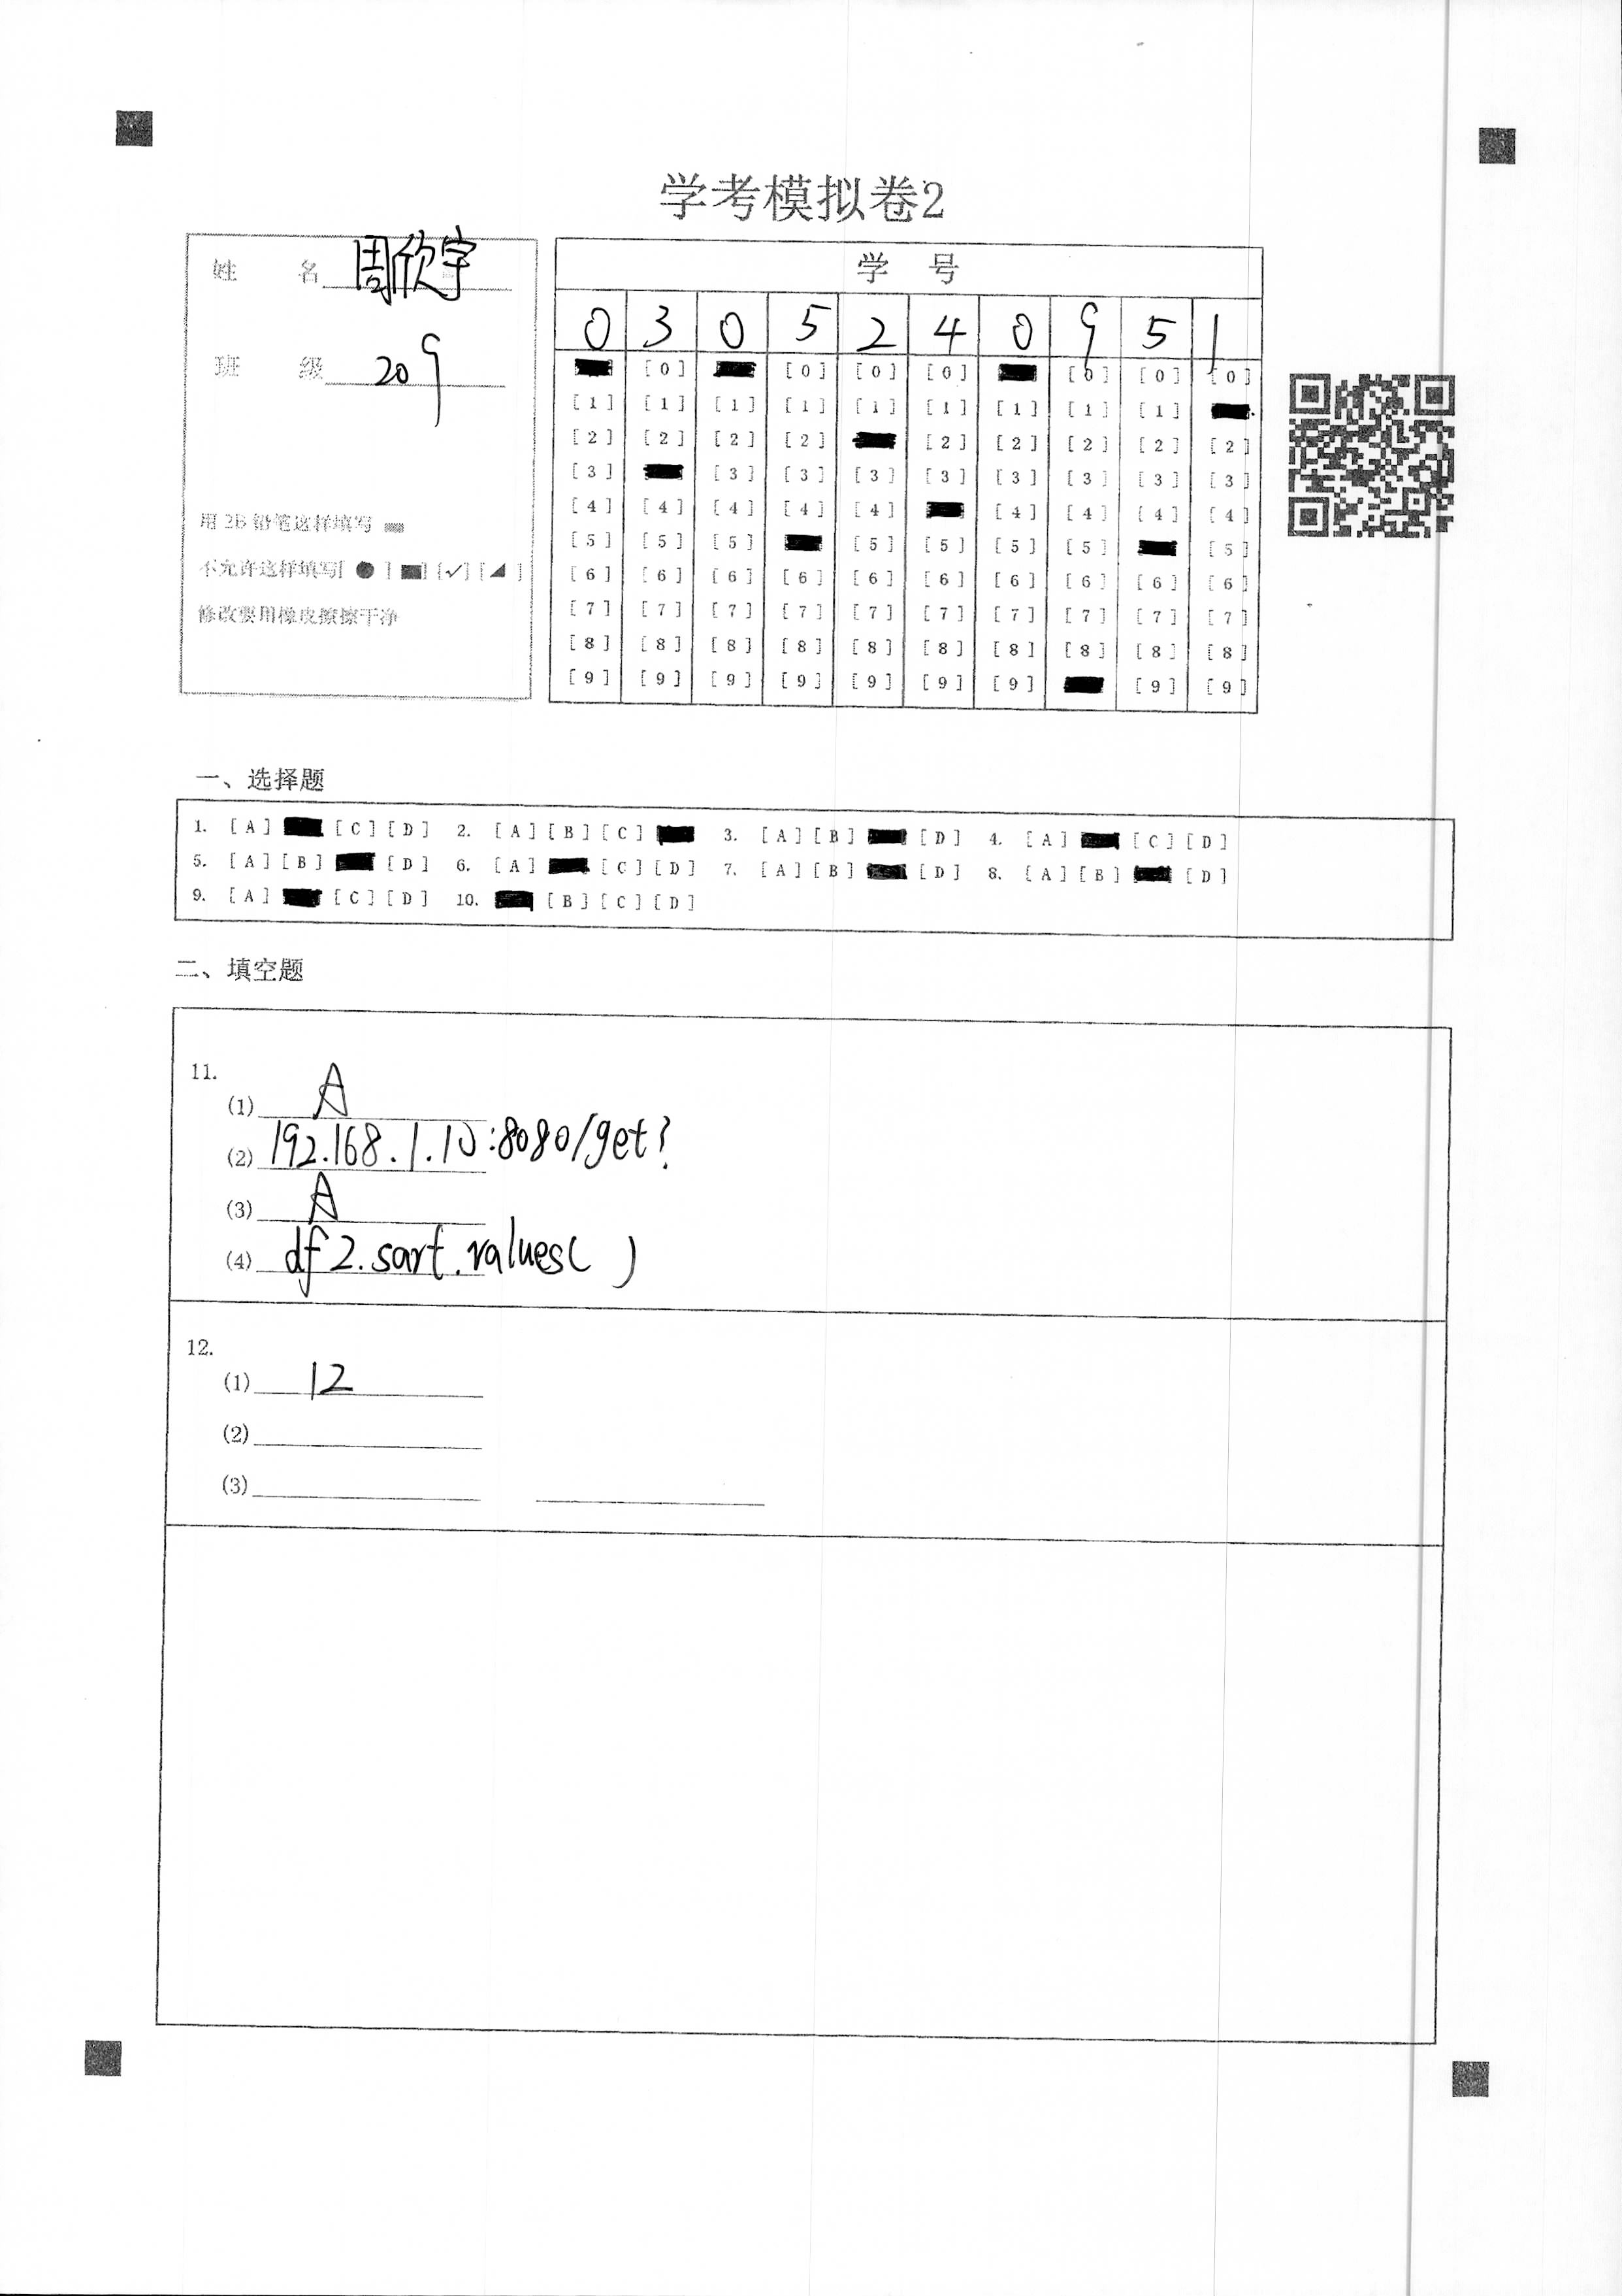 学考模拟卷2
姓 名 周欣宇
班 级 209
用 2B 铅笔这样填写
不允许这样填写[ ● ] [■] [✓] [◢ ]
修改要用橡皮擦擦干净
学 号
0 3 0 5 2 4 0 9 5 1
[0] [0] [0] [0] [0] [0] [0]
[1] [1] [1] [1] [1] [1] [1] [1] [1]
[2] [2] [2] [2] [2] [2] [2] [2] [2]
[3] [3] [3] [3] [3] [3] [3] [3] [3]
[4] [4] [4] [4] [4] [4] [4] [4] [4]
[5] [5] [5] [5] [5] [5] [5] [5]
[6] [6] [6] [6] [6] [6] [6] [6] [6] [6]
[7] [7] [7] [7] [7] [7] [7] [7] [7] [7]
[8] [8] [8] [8] [8] [8] [8] [8] [8] [8]
[9] [9] [9] [9] [9] [9] [9] [9] [9]
一、选择题
1. [A] [C] [D] 2. [A] [B] [C] 3. [A] [B] [D] 4. [A] [C] [D]
5. [A] [B] [D] 6. [A] [C] [D] 7. [A] [B] [D] 8. [A] [B] [D]
9. [A] [C] [D] 10. [B] [C] [D]
二、填空题
11.
(1) A
(2) 192.168.1.10:8080/get?
(3) A
(4) df2.sart.values( )
12.
(1) 12
(2)
(3)